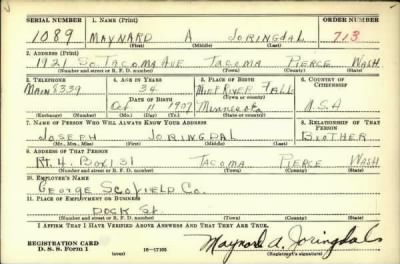 SERIAL NUMBER 1. NAME (Print) ORDER NUMBER
1089 MAYNARD A JORINGDAL 713
(First) (Middle) (Last)
2. ADDRESS (Print)
1921 SO TACOMA AVE TACOMA PIERCE WASH
(Number and street or R. F. D. number) (Town) (County) (State)
3. TELEPHONE 4. AGE IN YEARS 5. PLACE OF BIRTH 6. COUNTRY OF CITIZENSHIP
MAIN 8339 34 FALL
DATE OF BIRTH
Oct 11 1907 Minnesota U.S.A
(Exchange) (Number) (Mo.) (Day) (Yr.) (State or country)
7. NAME OF PERSON WHO WILL ALWAYS KNOW YOUR ADDRESS 8. RELATIONSHIP OF THAT PERSON
JOSEPH JORINGDAL BROTHER
(Mr., Mrs., Miss) (First) (Middle) (Last)
9. ADDRESS OF THAT PERSON
Rt. 4. Box 131 TACOMA PIERCE WASH
(Number and street or R. F. D. number) (Town) (County) (State)
10. EMPLOYER'S NAME
GEORGE SCOFIELD CO.
11. PLACE OF EMPLOYMENT OR BUSINESS
DOCK St.
(Number and street or R. F. D. number) (Town) (County) (State)
I AFFIRM THAT I HAVE VERIFIED ABOVE ANSWERS AND THAT THEY ARE TRUE.
REGISTRATION CARD
D. S. S. Form 1 16—17105
(over) Maynard A. Joringdal
(Registrant's signature)